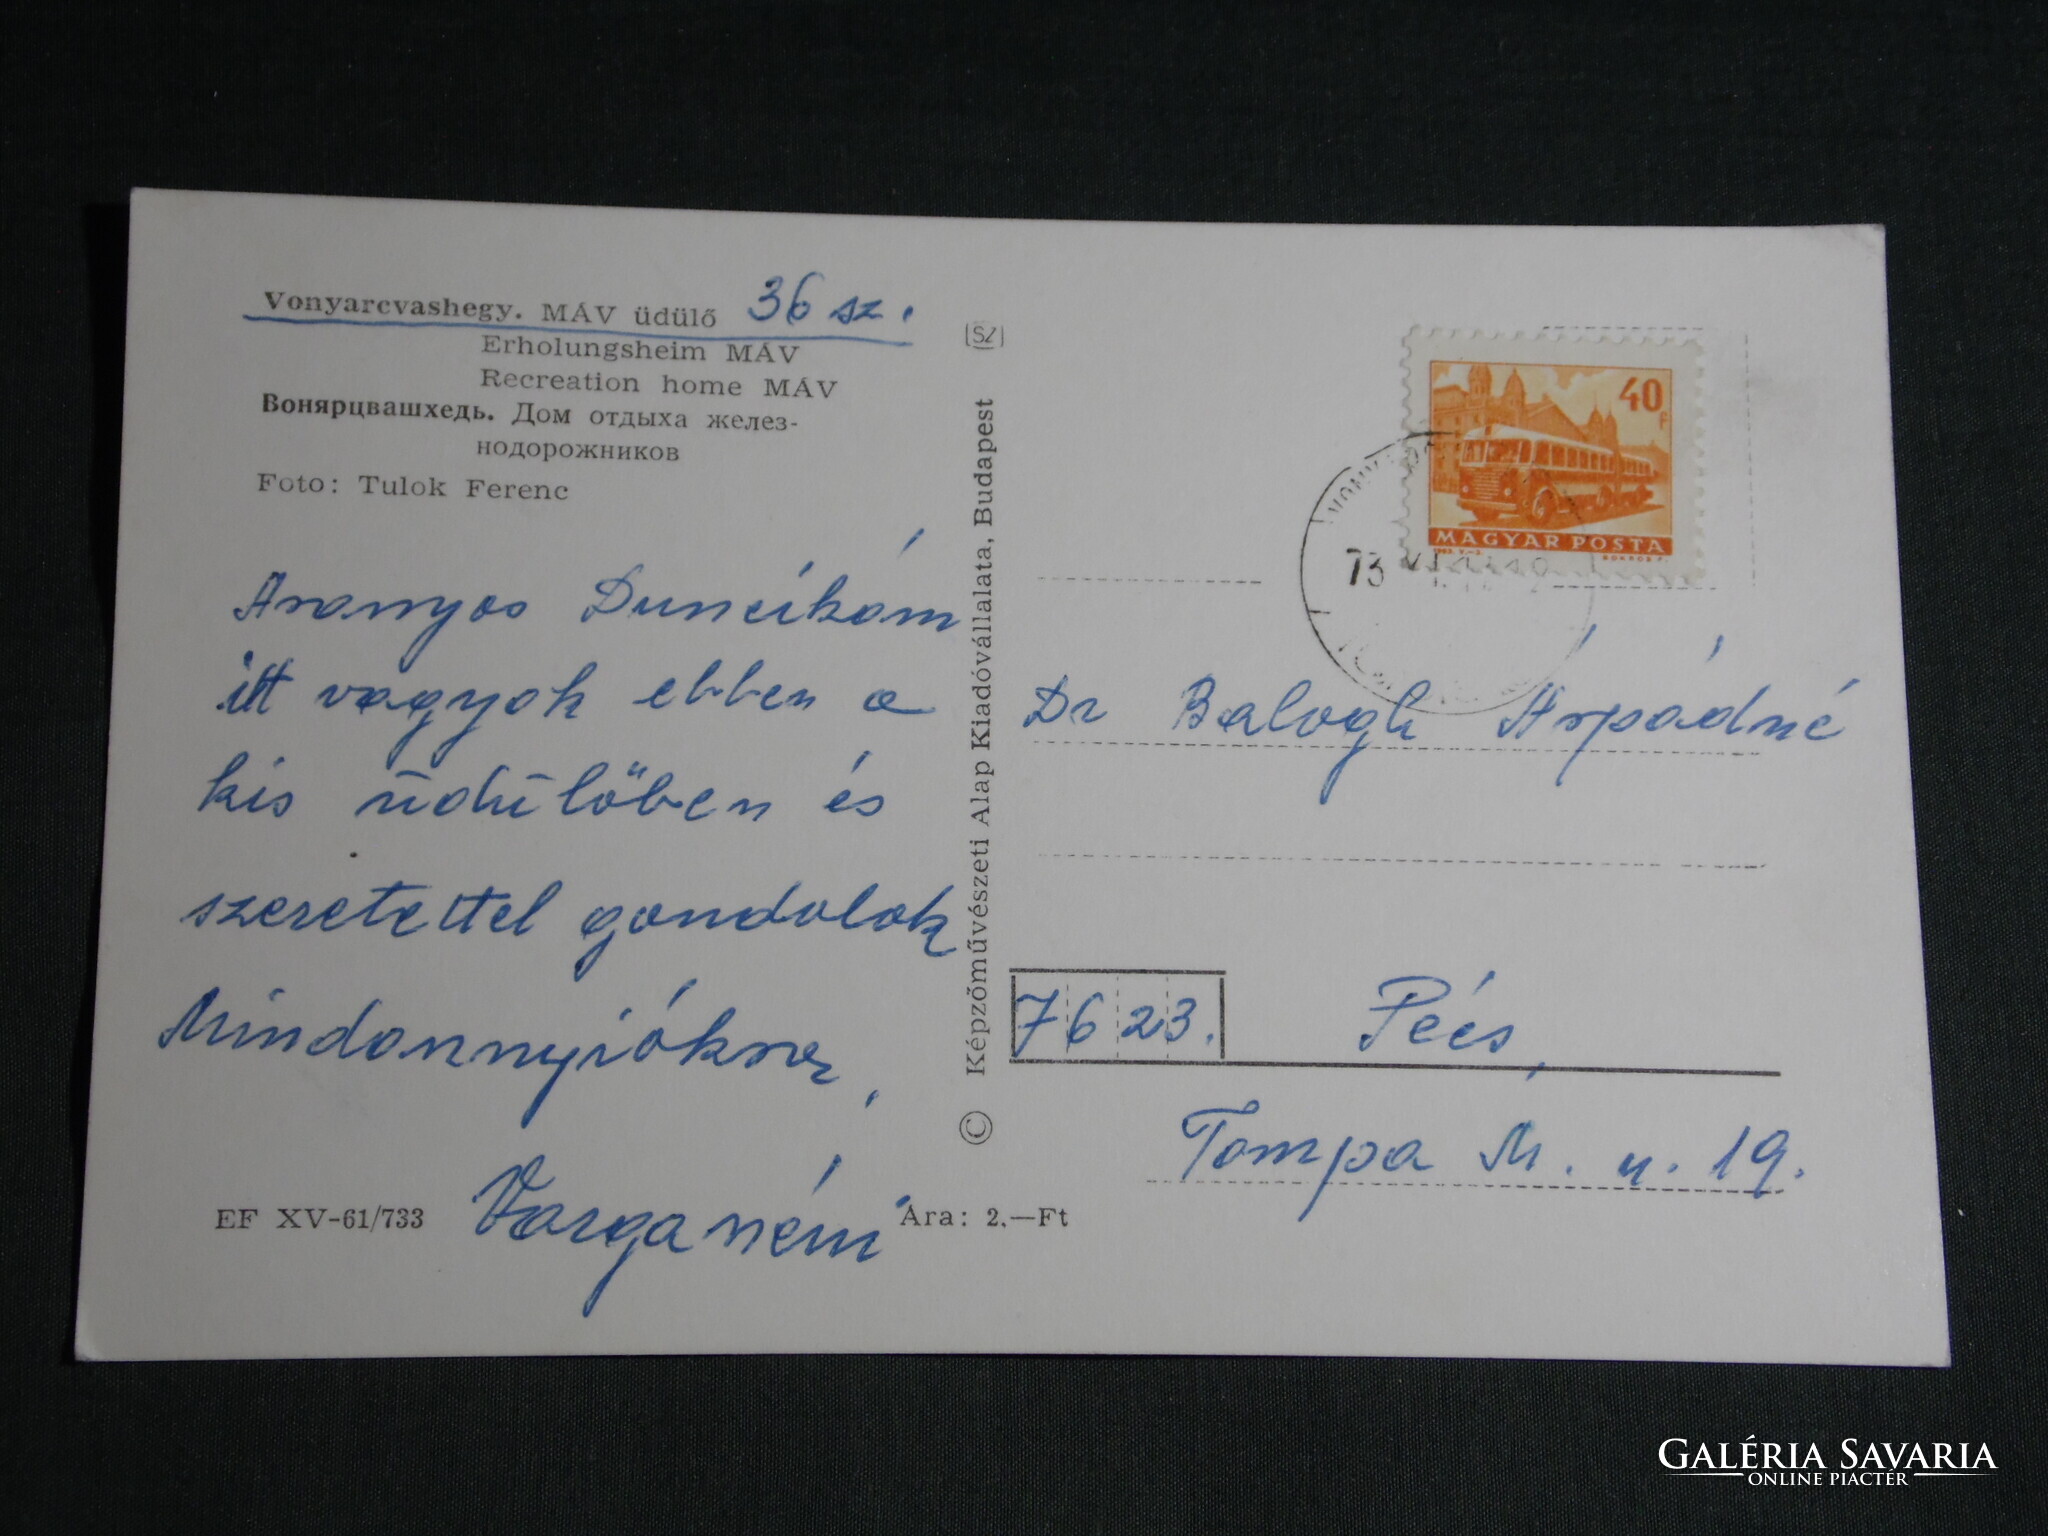 Vonyarcvashegy. MÁV üdülő 36 sz.
Erholungsheim MÁV
Recreation home MÁV
Вонярцвашхедь. Дом отдыха желез-
нодорожников
Foto: Tulok Ferenc
Aranyos Duncikám
itt vagyok ebben a
kis üdülőben és
szeretettel gondolok
Mindannyiókra,
Varga néni
EF XV-61/733
Ára: 2.—Ft
SZ
Képzőművészeti Alap Kiadóvállalata, Budapest
©
40 f
MAGYAR POSTA
73
Dr Balogh Árpádné
7623. Pécs,
Tompa M. u. 19.
GALÉRIA SAVARIA
ONLINE PIACTÉR